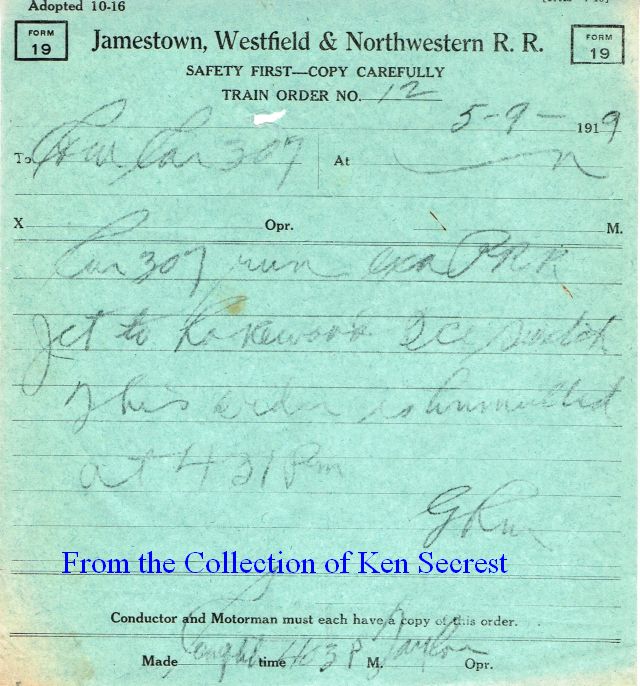 Adopted 10-16
FORM 19
Jamestown, Westfield & Northwestern R. R.
FORM 19
SAFETY FIRST—COPY CAREFULLY
TRAIN ORDER NO. 12
5-9- 1919
To Car 307 At
X Opr. M.
Car 307 run exa PRR
Jct to Lakewood Ice Switch
This order is annulled
at 431 Pm
From the Collection of Ken Secrest
Conductor and Motorman must each have a copy of this order.
Made time 403 P M. Taylor Opr.